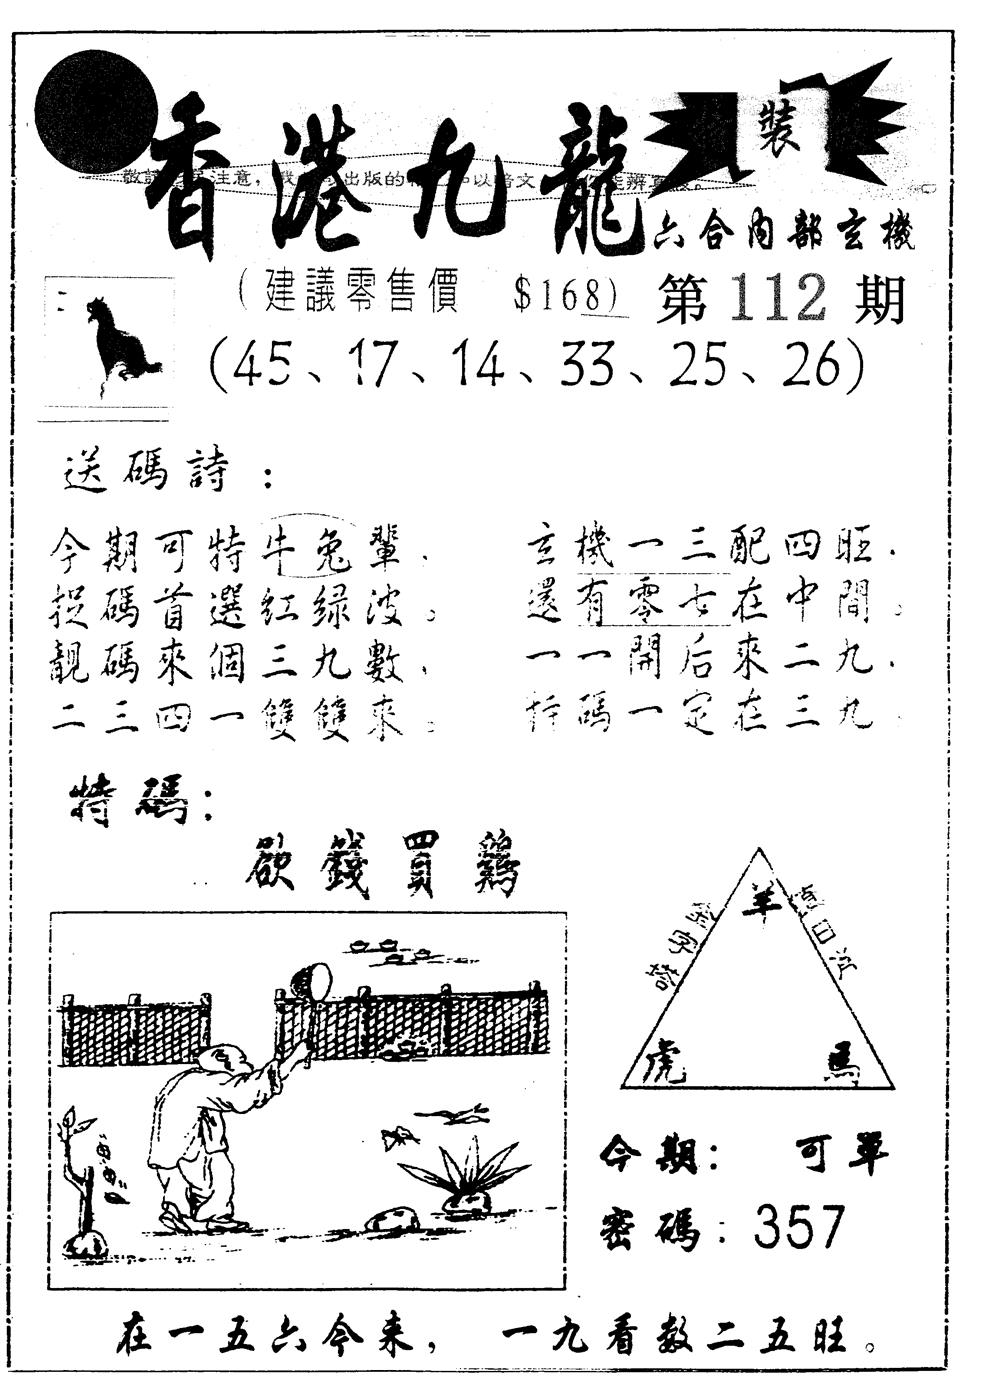 香港九龍
裝
敬請注意，出版的
六合內部玄機
(建議零售價 $168)
第112期
(45、17、14、33、25、26)
送碼詩：
今期可特牛兔輩．
捉碼首選紅绿波。
靚碼來個三九數，
二三四一雙雙來。
玄機一三配四旺．
還有零七在中間。
一一開后來二九．
特碼一定在三九．
特碼：
欲錢買鷄
金字塔
羊
虎
馬
今期： 可單
密碼：357
在一五六今来， 一九看数二五旺。